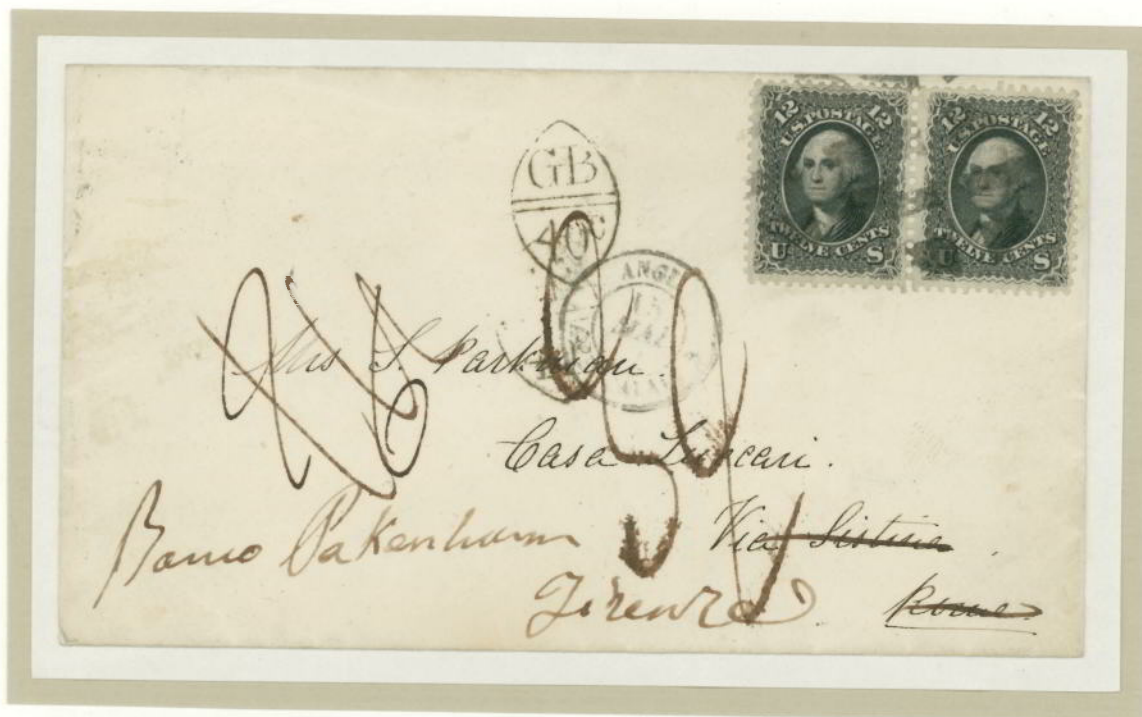 12 12
U.S. POSTAGE
TWELVE CENTS
U S
12 12
U.S. POSTAGE
TWELVE CENTS
U S
GB
40c
ANG
15
Mrs S. Parkman.
Casa
Via Sistina
Rome
Banco Pakenham
Firenze